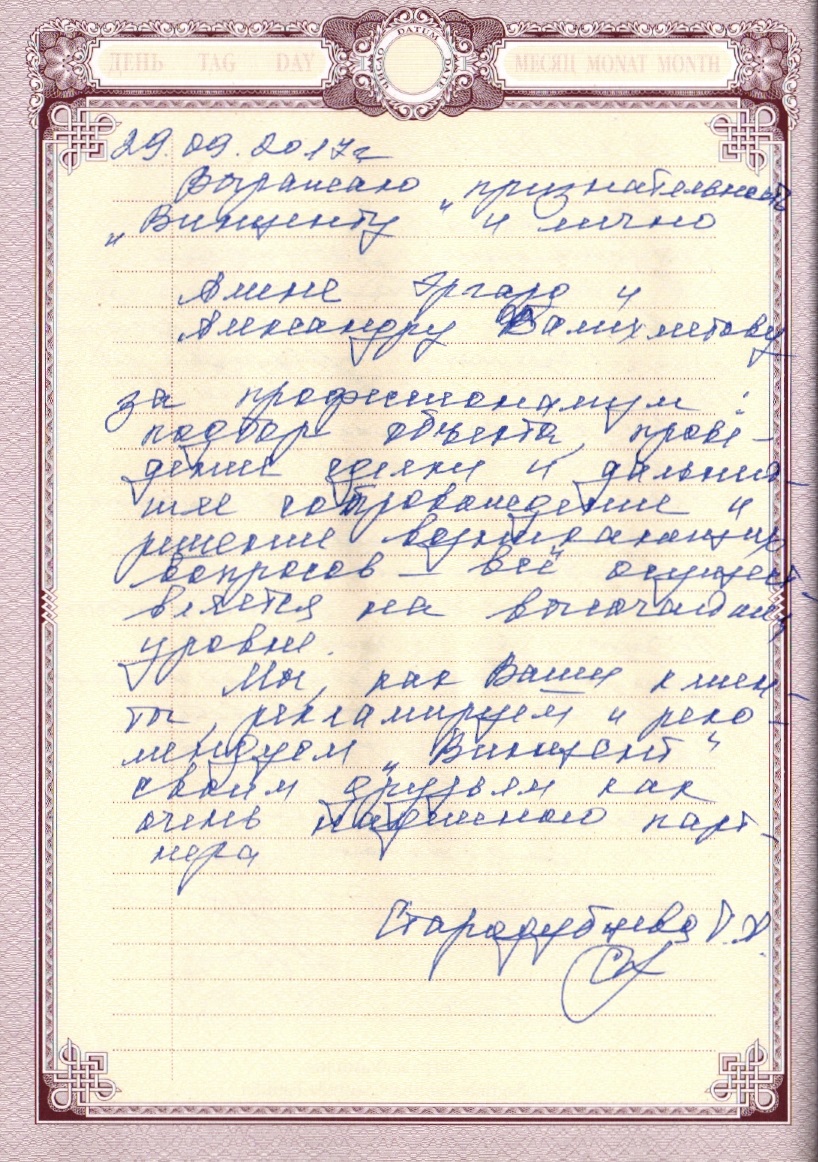 ДЕНЬ TAG DAY
ЧИСЛО DATUM DATE
МЕСЯЦ MONAT MONTH
29.09.2017г
Выражаю признательность
„Винценту" и лично
Алине и
Александру
за профессионализм:
подбор объекта, прове-
дение сделки и дальней-
шее сопровождение и
решение возникающих
вопросов – всё осущест-
вляется на высочайшем
уровне.
Мы, как Ваши клиен-
ты, рекламируем и реко-
мендуем „Винцент"
своим друзьям как
очень надежного парт-
нера
Стародубцева